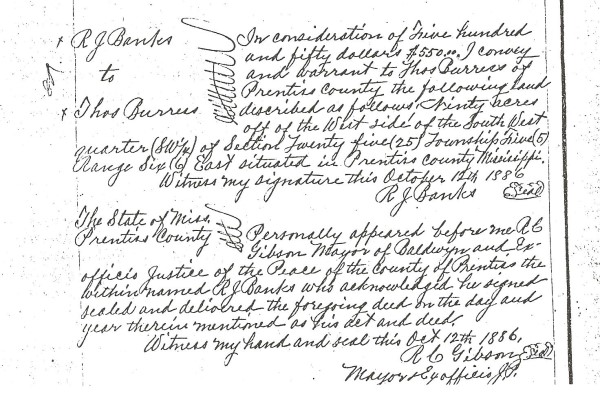 x R J Banks
to
x Thos Burress
In consideration of Five hundred
and fifty dollars $550.00. I convey
and warrant to Thos Burress of
Prentiss County the following land
described as follows Ninty acres
off of the West side of the South West
quarter (SW¼) of Section Twenty five (25) Township Five (5)
Range Six (6) East situated in Prentiss county Missisippi.
Witness my signature this October 12th 1886
R J Banks Seal
The State of Miss.
Prentiss County
Personally appeared before me R C
Gibson Mayor of Baldwyn and Ex-
officio Justice of the Peace of the county of Prentiss the
within named R J Banks who acknowledgd he signed
sealed and delivered the foregoing deed on the day and
year therein mentioned as his act and deed.
Witness my hand and seal this Oct 12th 1886,
R C Gibson Seal
Mayor & Ex officio J.P.